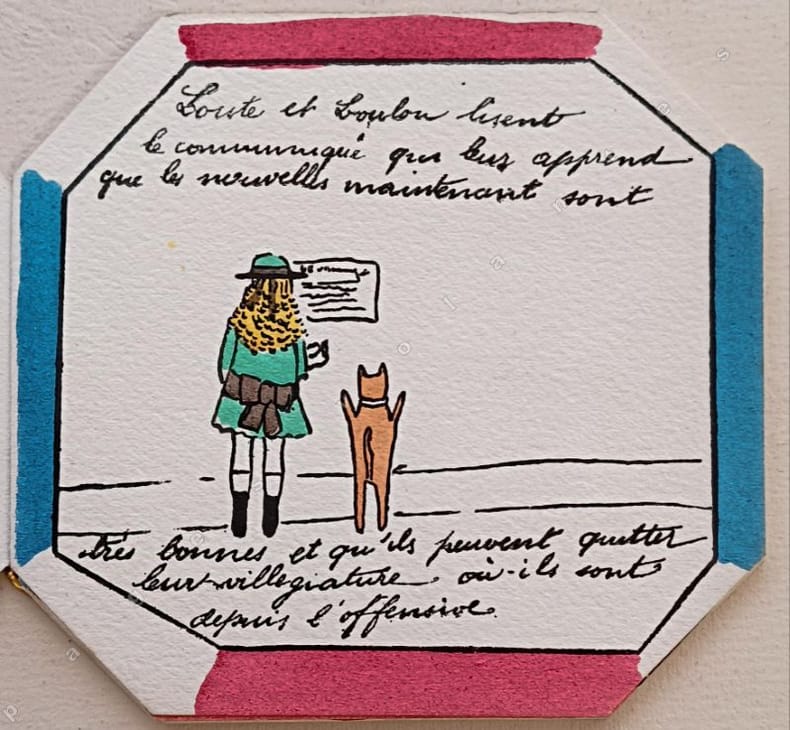 Loute et Loulou lisent
le communiqué qui leur apprend
que les nouvelles maintenant sont
très bonnes et qu'ils peuvent quitter
leur villegiature où-ils sont
depuis l'offensive.